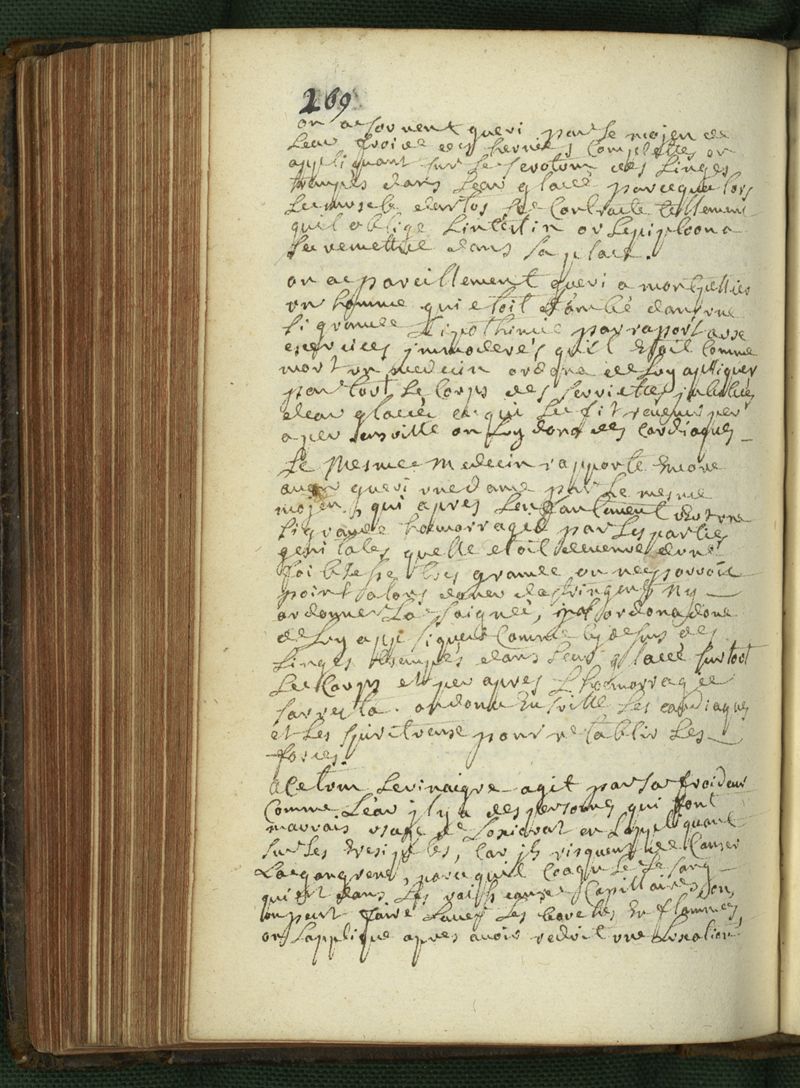 269
on a souvent gueri par le moien de
leau froide des hernies complettes en
appliquant sur le scrotum des linges
trempés dans leau glacée parceque lors
le muscle dartos se contracte tellement
quil oblige lintestin ou lepiploon a
se remettre dans sa place.
on a pareillement gueri a montpellier
un homme qui etoit tombé dans une
si grande lipothimie par raport aux
exercices immoderés quil etoit comme
mort un medecin ordona de luy appliquer
par tout le corps des serviettes imbibées
deau glacée ce qui le fit revenir peu
a peu ensuitte on luy dona des cardiaques
le mesme medecin rapporte encore
avoir gueri une dame par le mesme
moien, qui apres lenfantement eut une
si grande hemorragie par les parties
genitales quelle etoit devenue dune
foiblesse tres grande on ne pouvoit
point alors doner dastringents ny
ordonner la saignée, il ordona donc
de luy appliquer comme cy desus des
linges trempés dans leau glacée sur tout
le corps et peu apres lhemorragie
sarresta. on dona ensuitte les cardiaques
et les spiritueux pour retablir les
forces.
acetum le vinaigre agit par sa froideur
comme leau il y a des personnes qui font
mauvais usage de loxicrat en lappliquant
sur les eresipeles, car ils risquent de causer
la gangrene, parce quil coagule le sang
qui est dans les vaisseaux capillaires, on
en peut faire laver les bouches enflammées
on lapplique apres avoir reduit une luxation